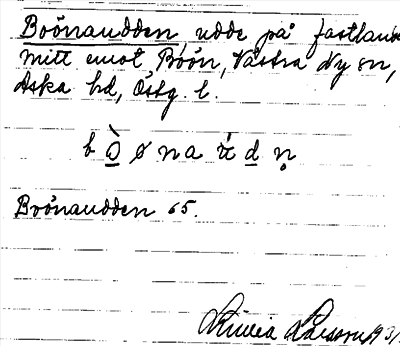 Boönaudden, udde på fastlandet
mitt emot Boön, Västra Ny sn,
Aska hd, Östg. l.
b ò ø n a ú d n̥
Boönaudden 65.
Larsson 1931